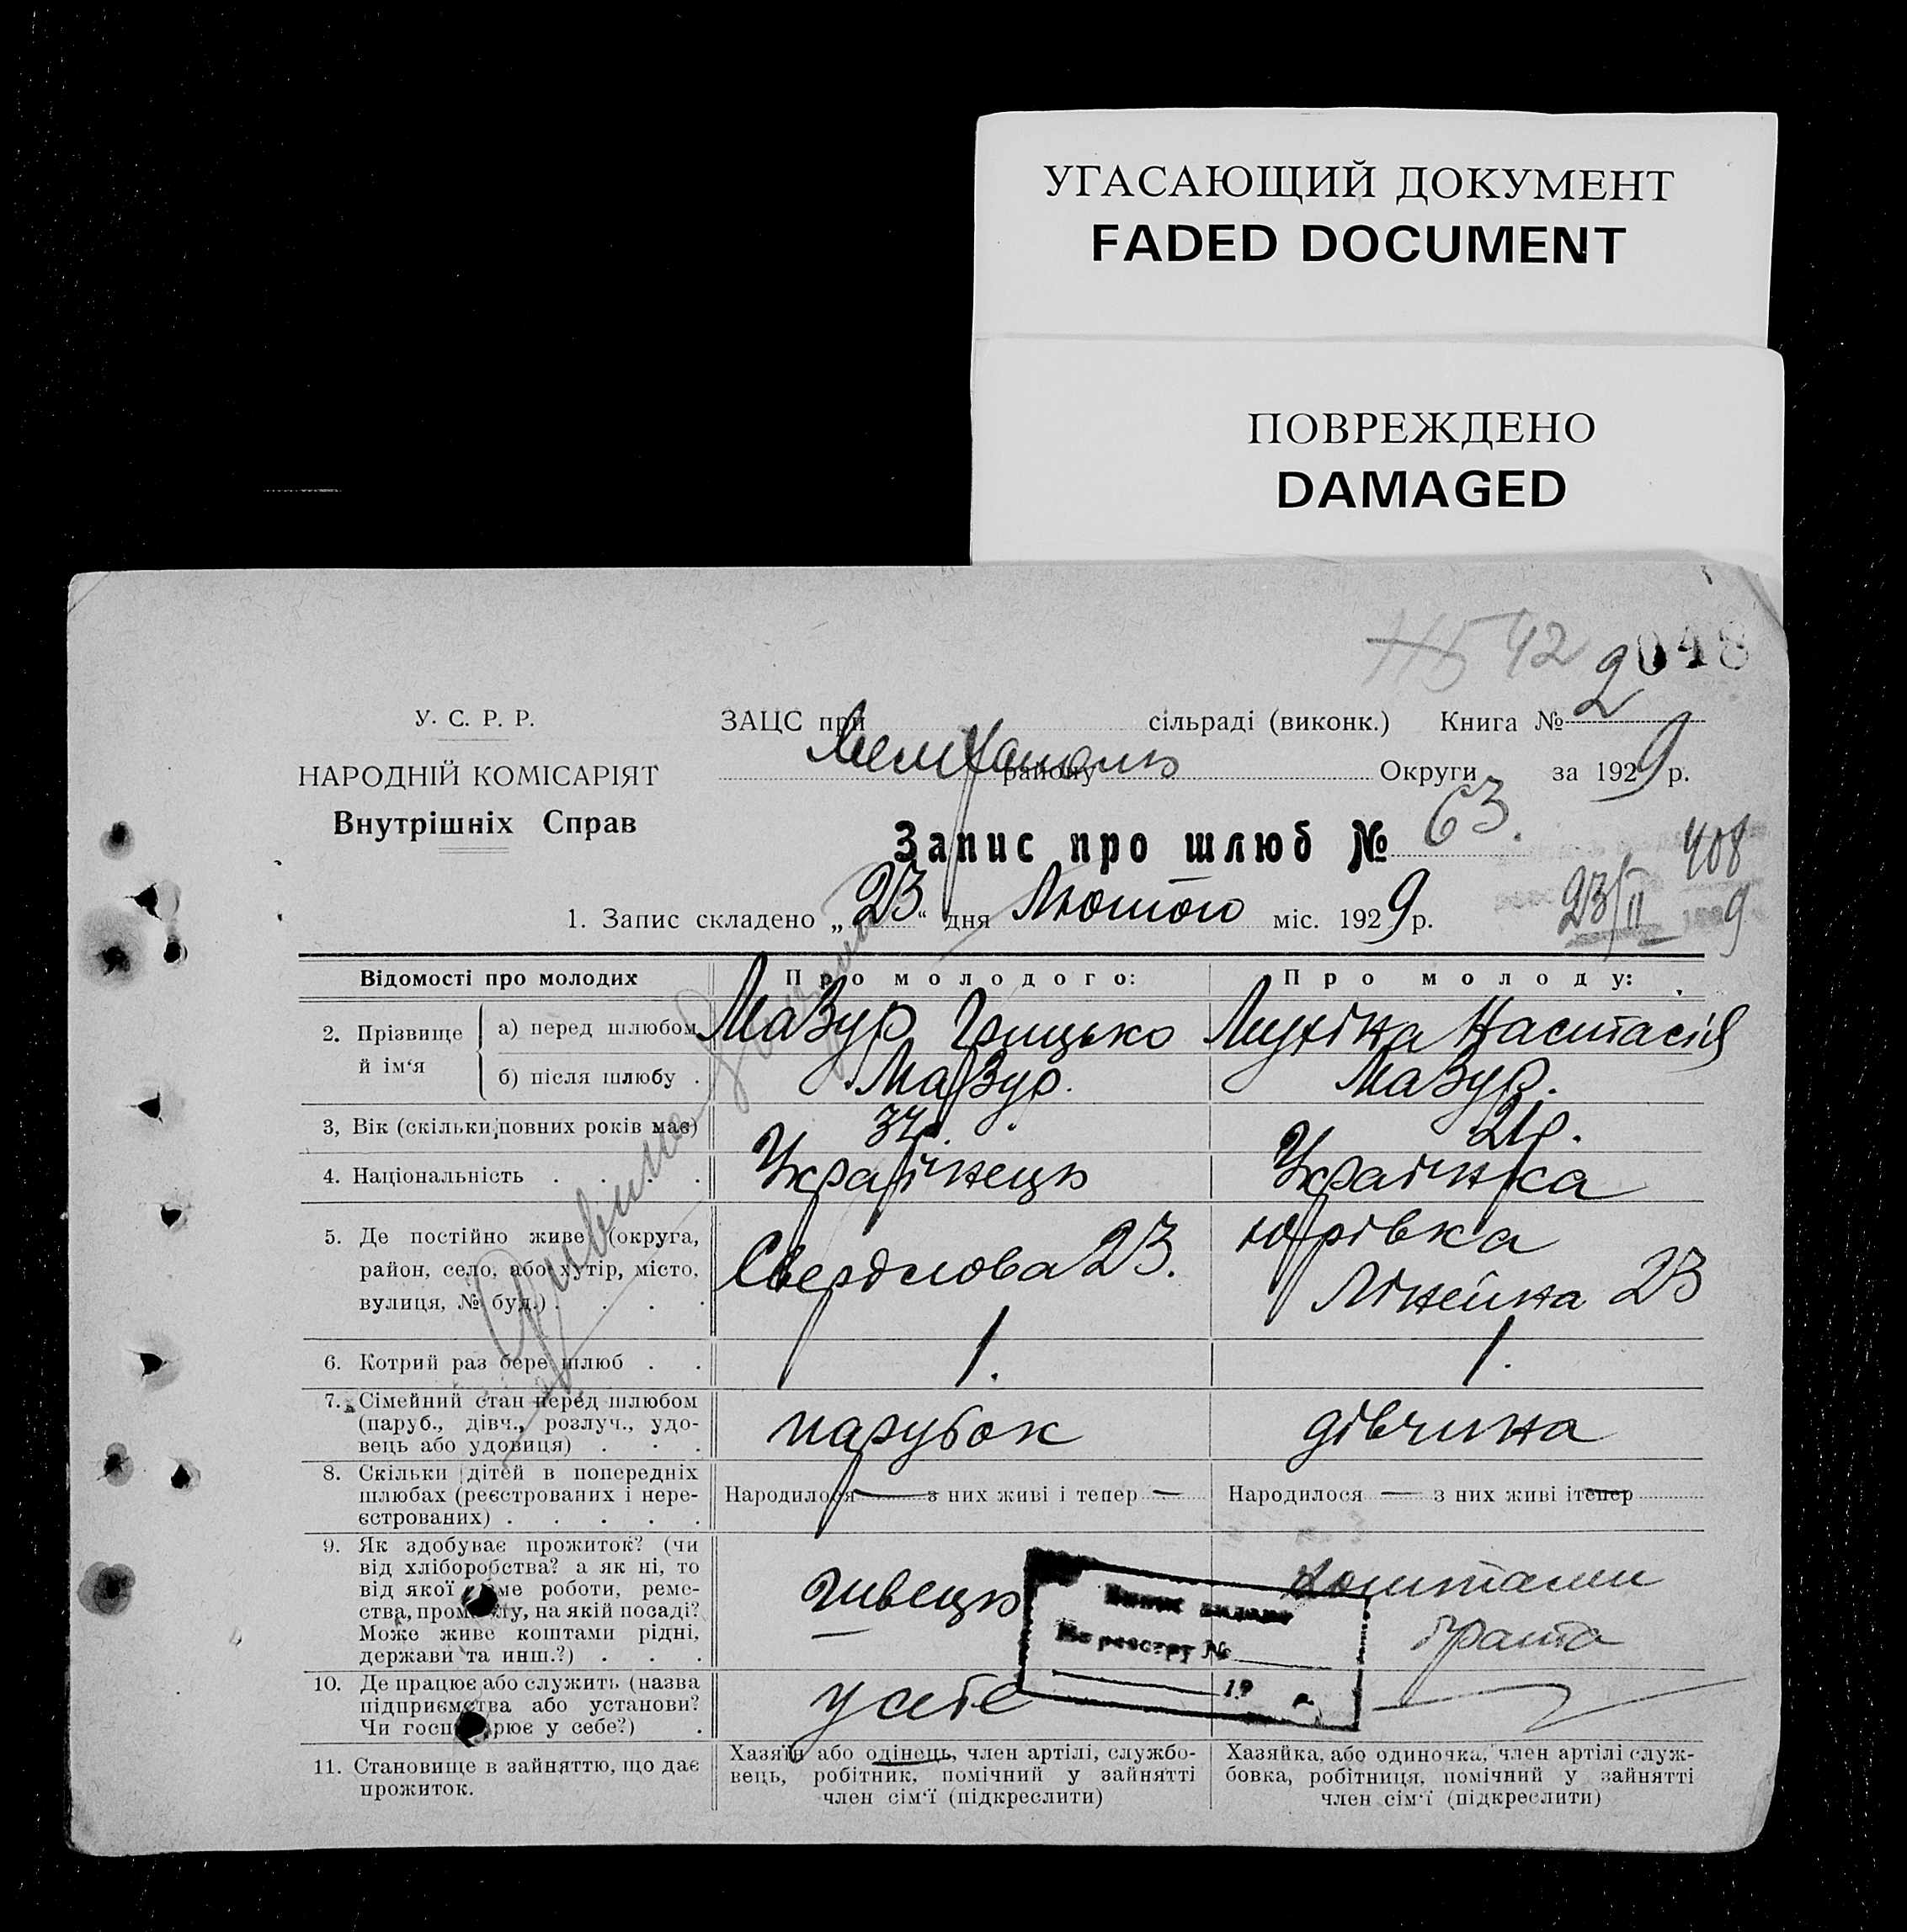 УГАСАЮЩИЙ ДОКУМЕНТ
FADED DOCUMENT
ПОВРЕЖДЕНО
DAMAGED
42 2048
У. С. Р. Р.
НАРОДНІЙ КОМІСАРІЯТ
Внутрішніх Справ
ЗАЦС при сільраді (виконк.) Книга № 2
району Округи за 1929 р.
Запис про шлюб № 63.
408
1. Запис складено „23“ дня Лютого міс. 1929 р.
23/II 9
Відомості про молодих
Про молодого:
Про молоду:
2. Прізвище й ім‘я
а) перед шлюбом
Мазур Грицько
Настасія
б) після шлюбу .
Мазур.
Мазур.
3, Вік (скільки повних років має)
21р.
4. Національність . . . .
Українець
Українка
5. Де постійно живе (округа,
район, село, або хутір, місто,
вулиця, № буд.) . . . .
Свердлова 23.
Юрівка
Лінейна 23
6. Котрий раз бере шлюб . .
1.
1.
7. Сімейний стан перед шлюбом
(паруб., дівч., розлуч., удо-
вець або удовиця) . . .
парубок
дівчина
8. Скільки дітей в попередніх
шлюбах (реєстрованих і нере-
єстрованих) . . . . .
Народилося — з них живі і тепер —
Народилося — з них живі і тепер
9. Як здобуває прожиток? (чи
від хліборобства? а як ні, то
від якої ме роботи, реме-
ства, пром лу, на якій посаді?
Може живе коштами рідні,
держави та инш.?) . . .
швець
коштами
брата
На реєстр №
19 р.
10. Де працює або служить (назва
підприємства або установи?
Чи госп рює у себе?) .
у себе
11. Становище в зайняттю, що дає
прожиток.
Хазяїн або одінець, член артілі, службо-
вець, робітник, помічний у зайнятті
член сім‘ї (підкреслити)
Хазяйка, або одиночка, член артілі служ-
бовка, робітниця, помічний у зайнятті
член сім‘ї (підкреслити)